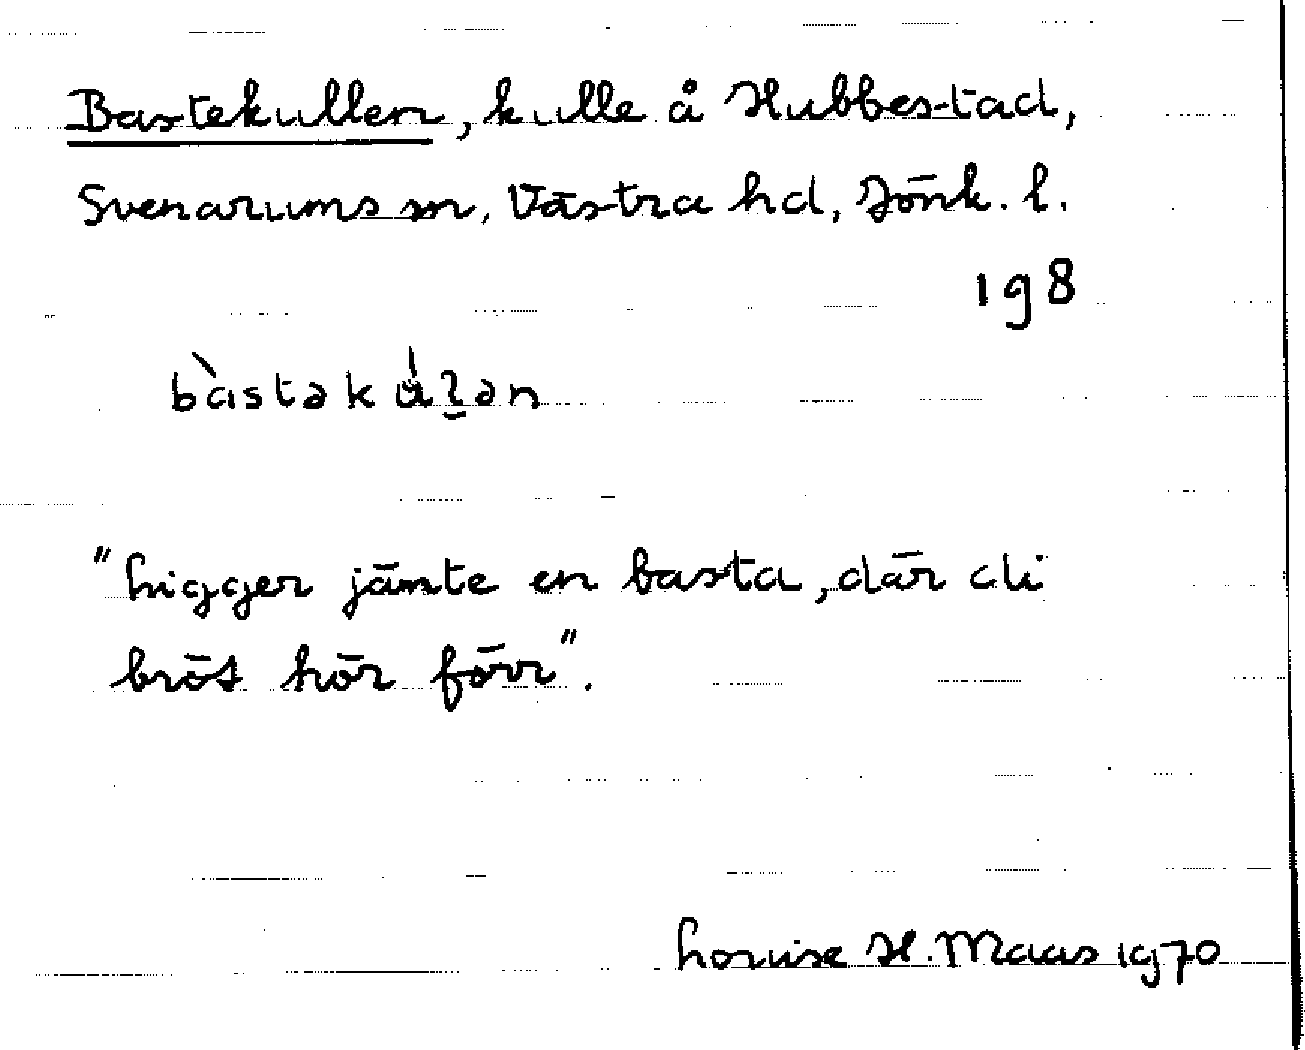 Bastekullen, kulle å Hubbestad,
Svenarums sn, Västra hd, Jönk. l.
198
"Ligger jämte en basta, där di
bröt hör förr".
Louise H. Maas 1970